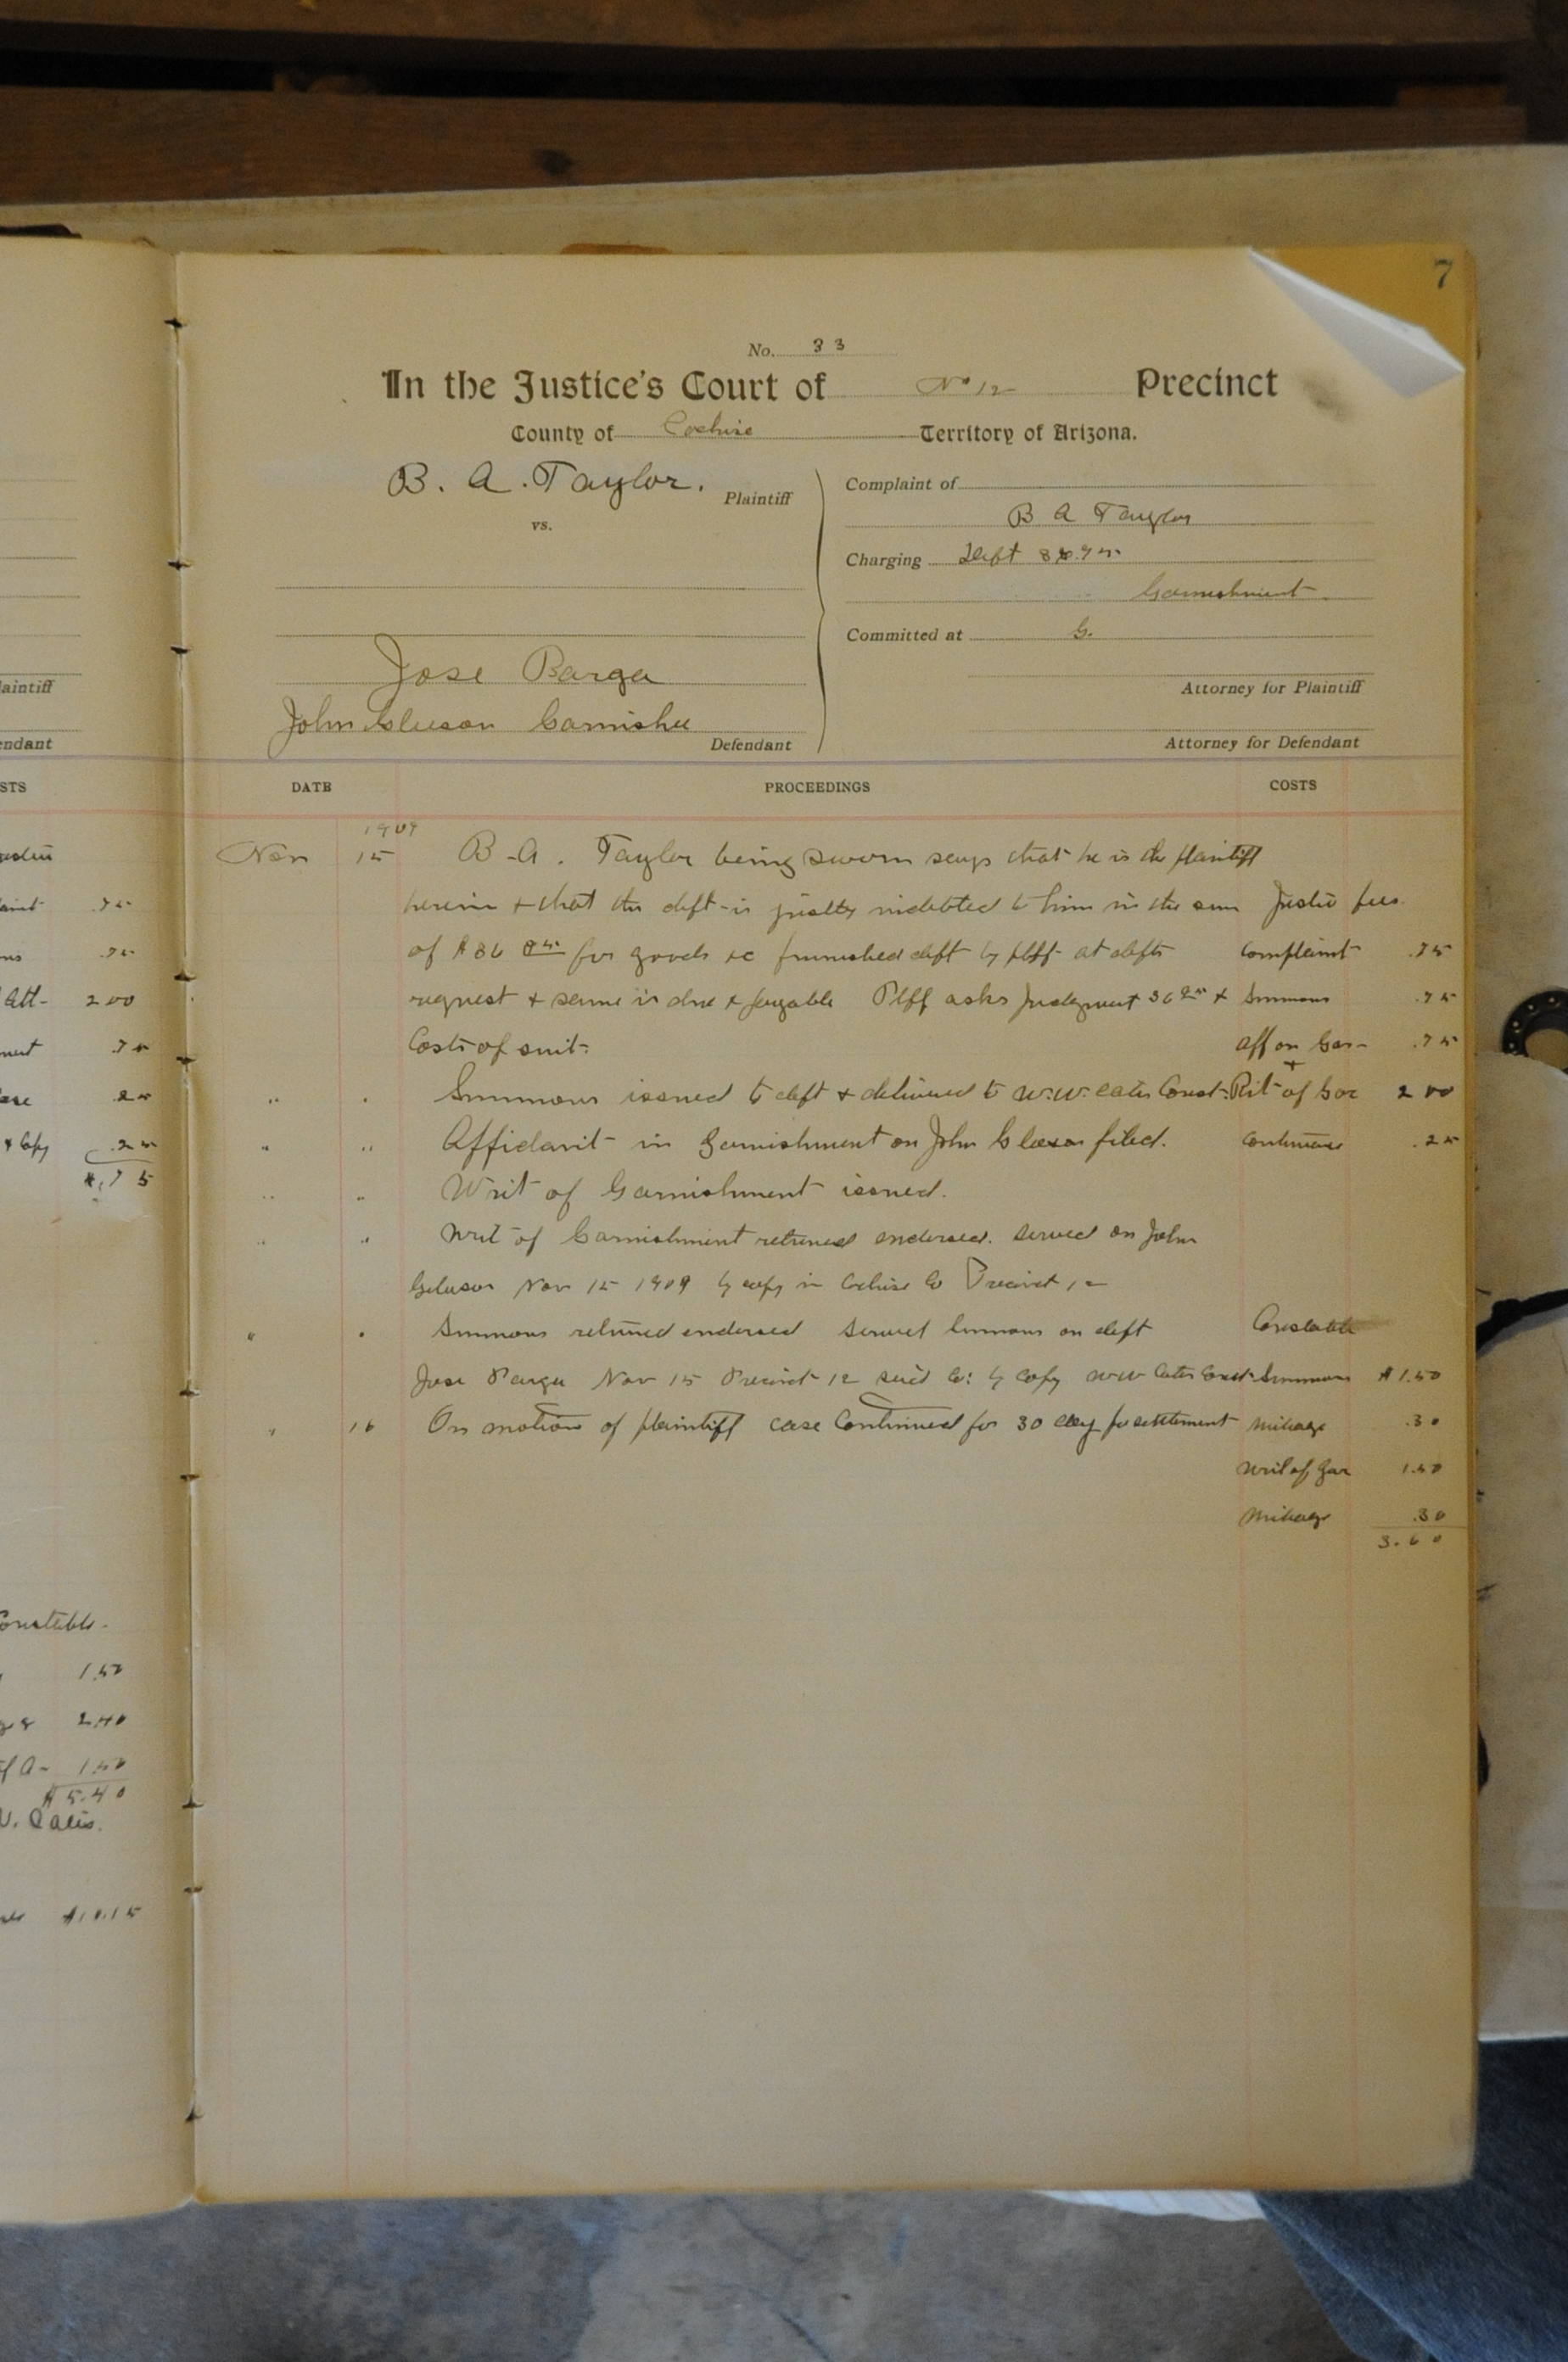 7
No. 33
In the Justice's Court of No 12 Precinct
County of Cochise Territory of Arizona.
B. A. Taylor. Plaintiff
vs.
Jose Parga
John Gleeson Garnishee
Defendant
Complaint of
B A Taylor
Charging Debt
Garnishment
Committed at G.
Attorney for Plaintiff
Attorney for Defendant
DATE PROCEEDINGS COSTS
1909
Nov 15 B. A. Taylor being sworn says that he is the plaintiff
herein + that the deft is justly indebted to him in the sum Justice fees
of $36 for goods &c furnished deft by plff at defts Complaint .75
request + same is due & payable Plff asks Judgment 36 + Summons .75
Costs of suit. Aff on Gar- .75
" " Summons issued to deft + delivered to W.W. Cates Const. Rit of Gar 2 00
" " Affidavit in Garnishment on John Gleeson filed. Continuance .25
" " Writ of Garnishment issued.
" " Writ of Garnishment returned endorsed. served on John
Gleeson Nov 15 1909 by copy in Cochise Co Precinct 12
" " Summons returned endorsed served Summons on deft Constable
Jose Parga Nov 15 Precinct 12 said Co: by copy WW Cates Const. Summons $1.50
" 16 On motion of plaintiff case Continued for 30 day for settlement Mileage .30
Writ of Gar 1.50
Mileage .30
3.60
laintiff
endant
STS
.75
.75
Att- 2 00
.75
.25
& Copy .25
4.75
Constable.
1.50
2.40
of A- 1.50
$5.40
W. Cates.
$10.15